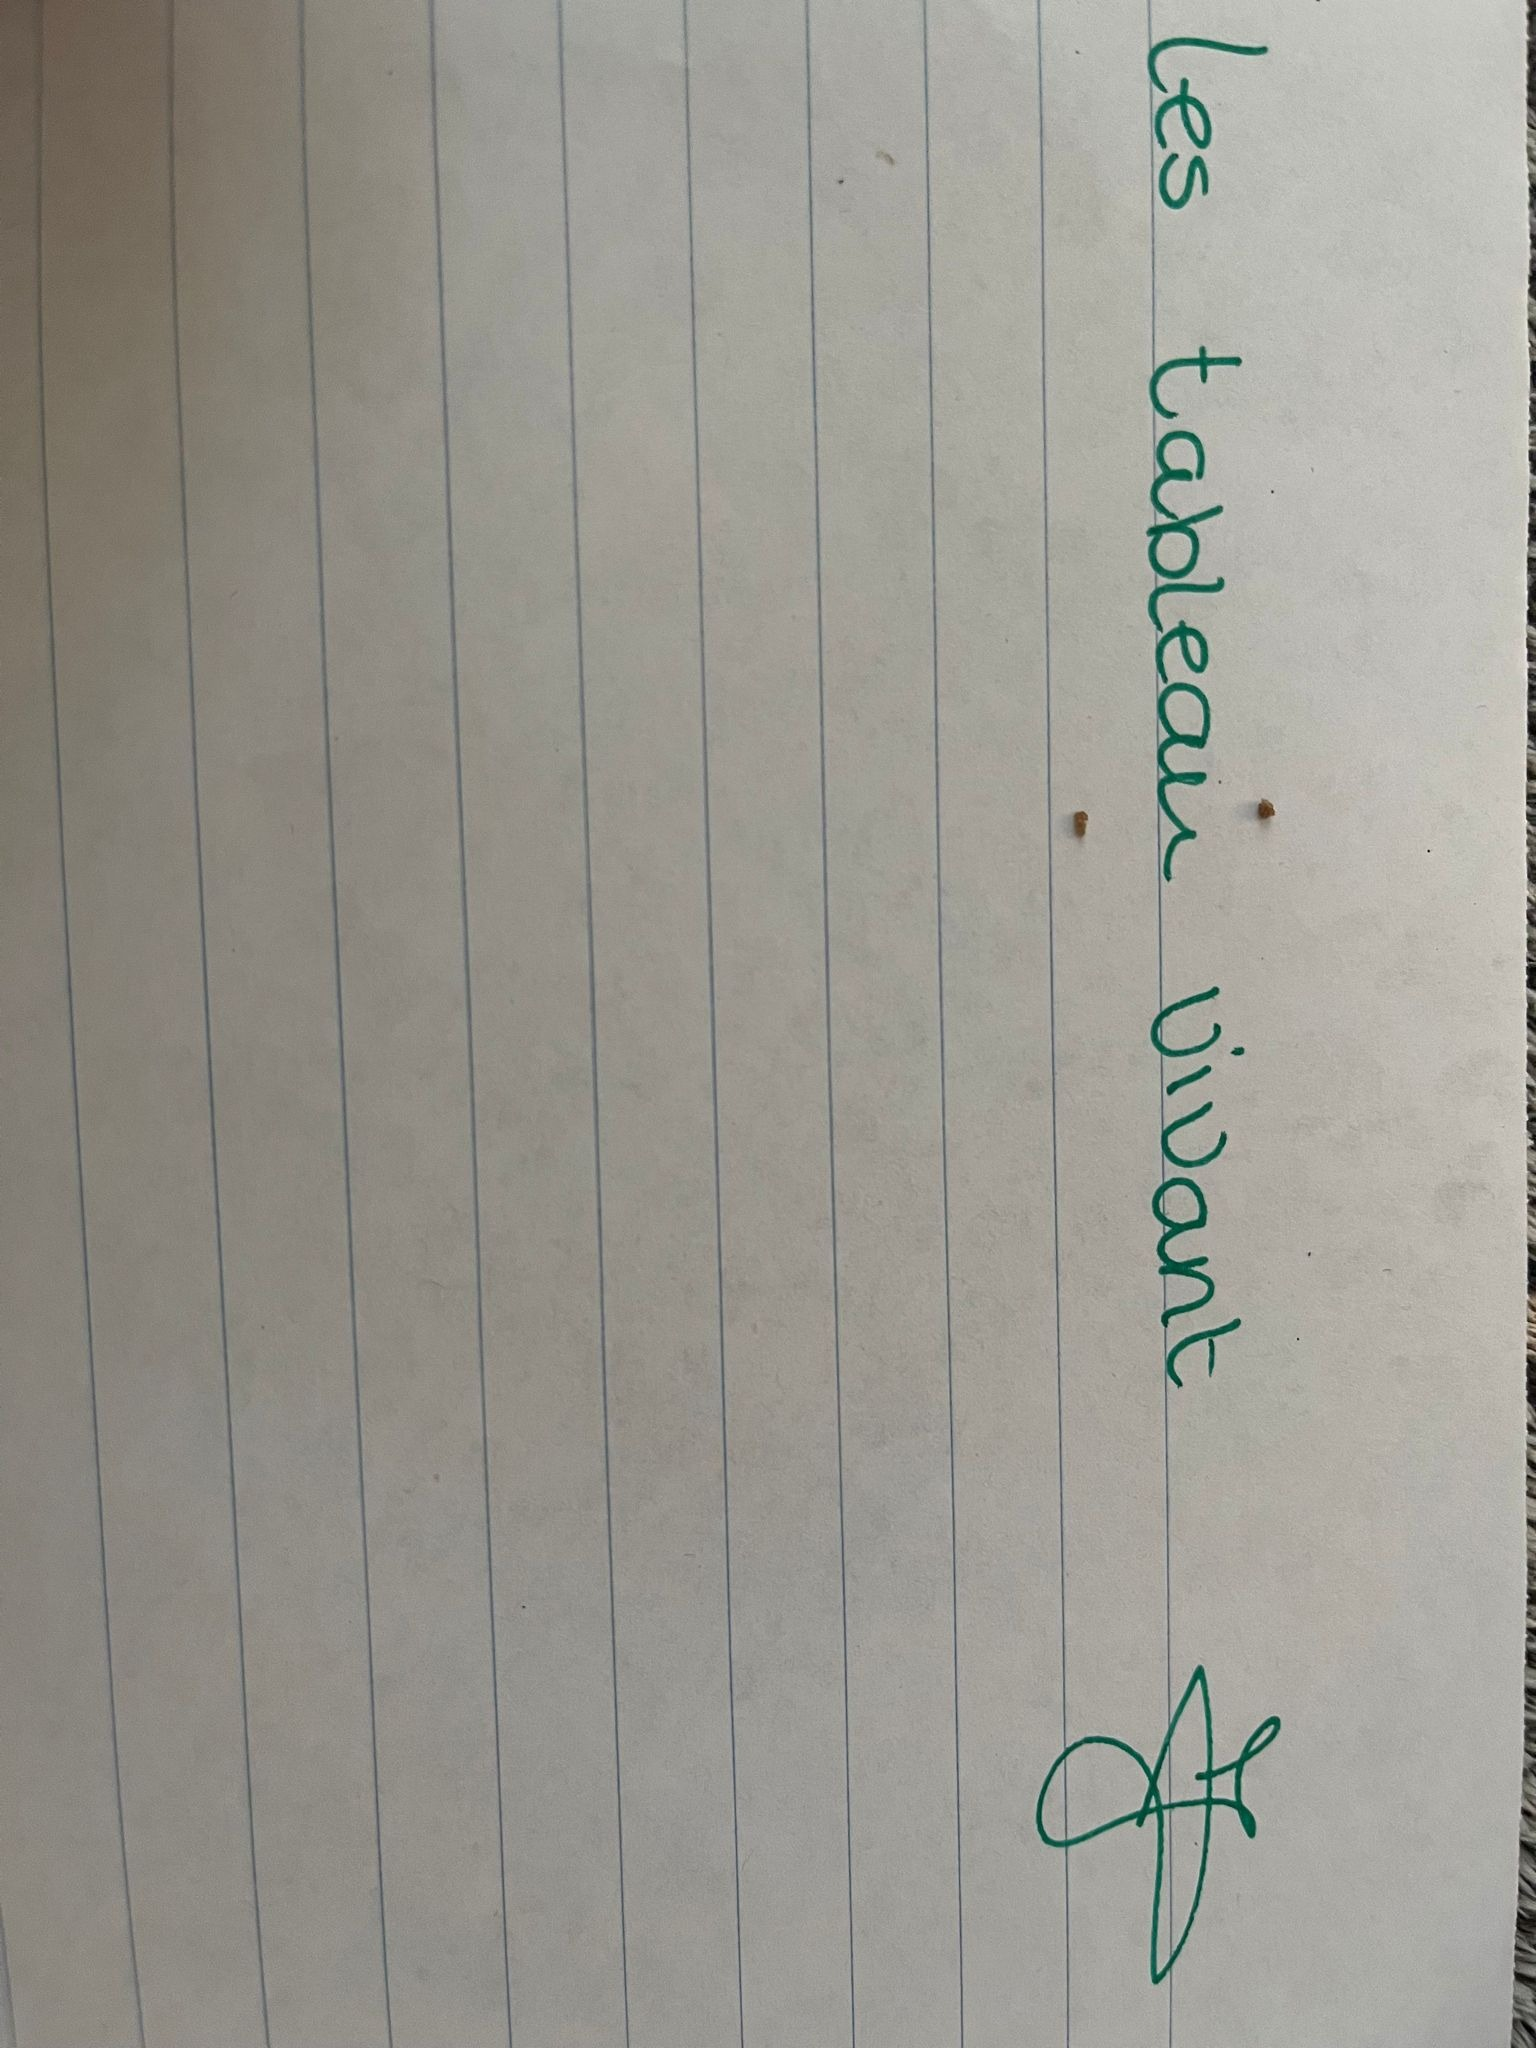 Les tableau vivant